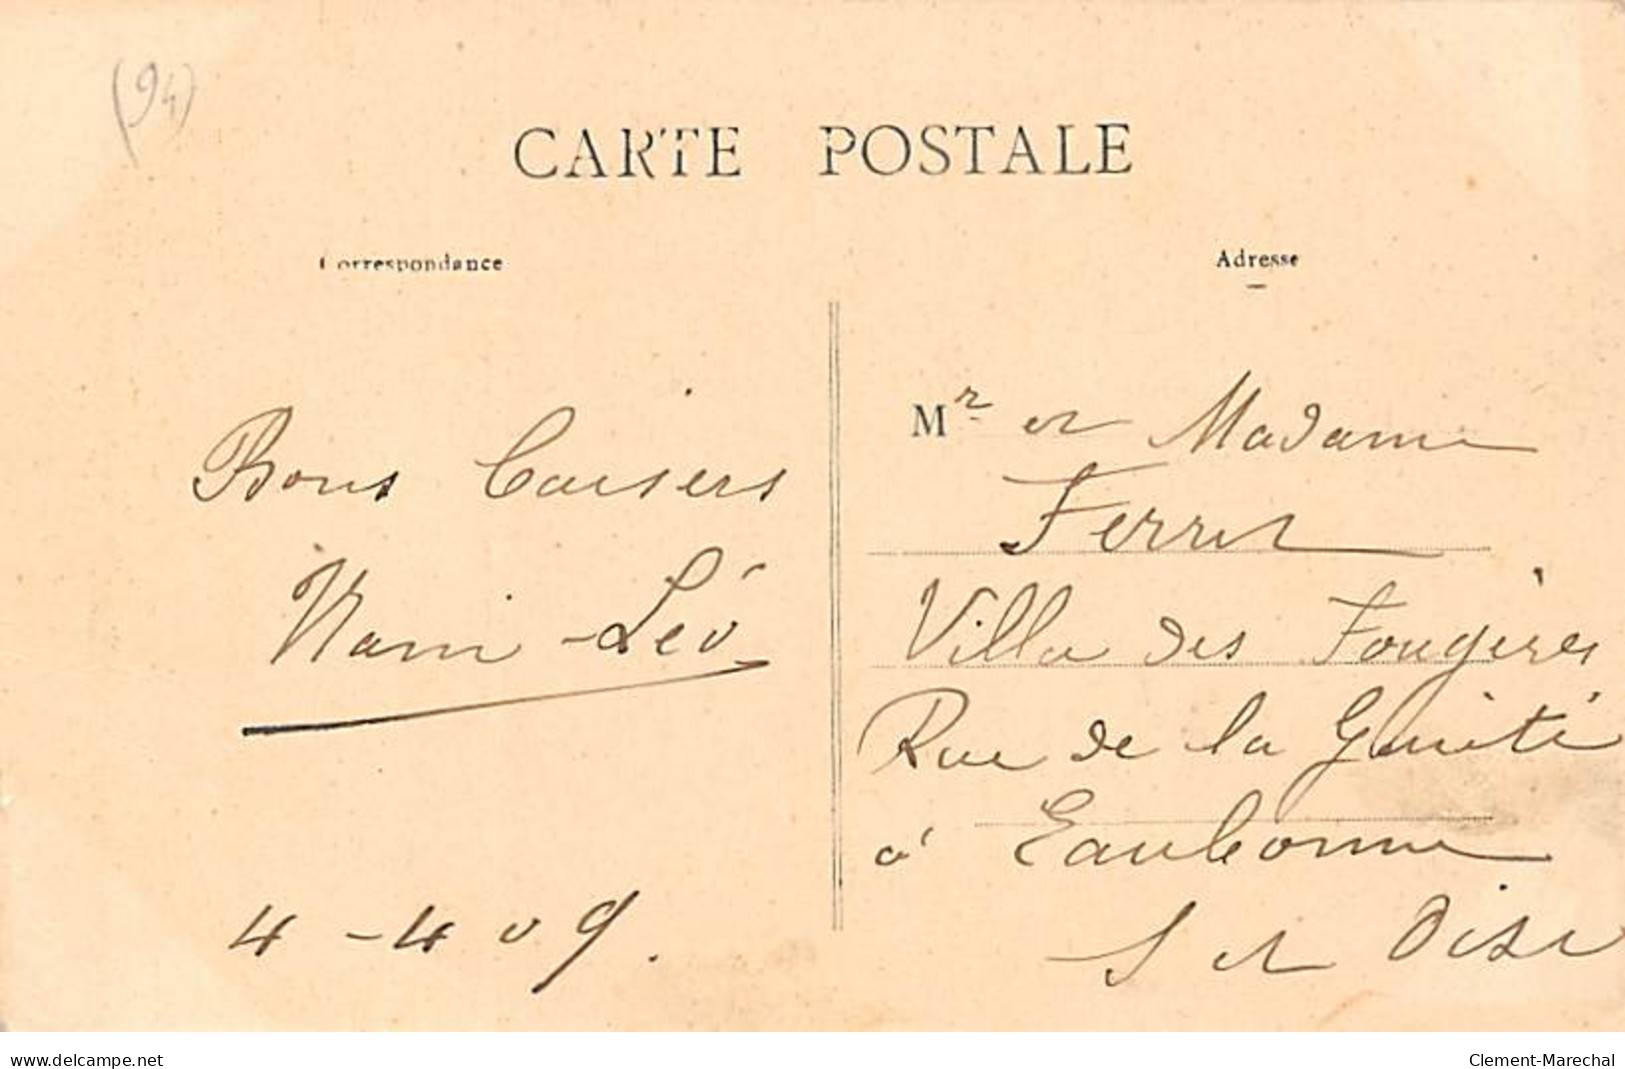 (94)
CARTE POSTALE
Correspondance
Adresse
Bons Baisers
Nani-Léo
4-4 09.
Mr et Madame
Ferret
Villa des Fougères
Rue de la Gaiité
à Eaubonne
S et Oise
www.delcampe.net
Clement-Marechal